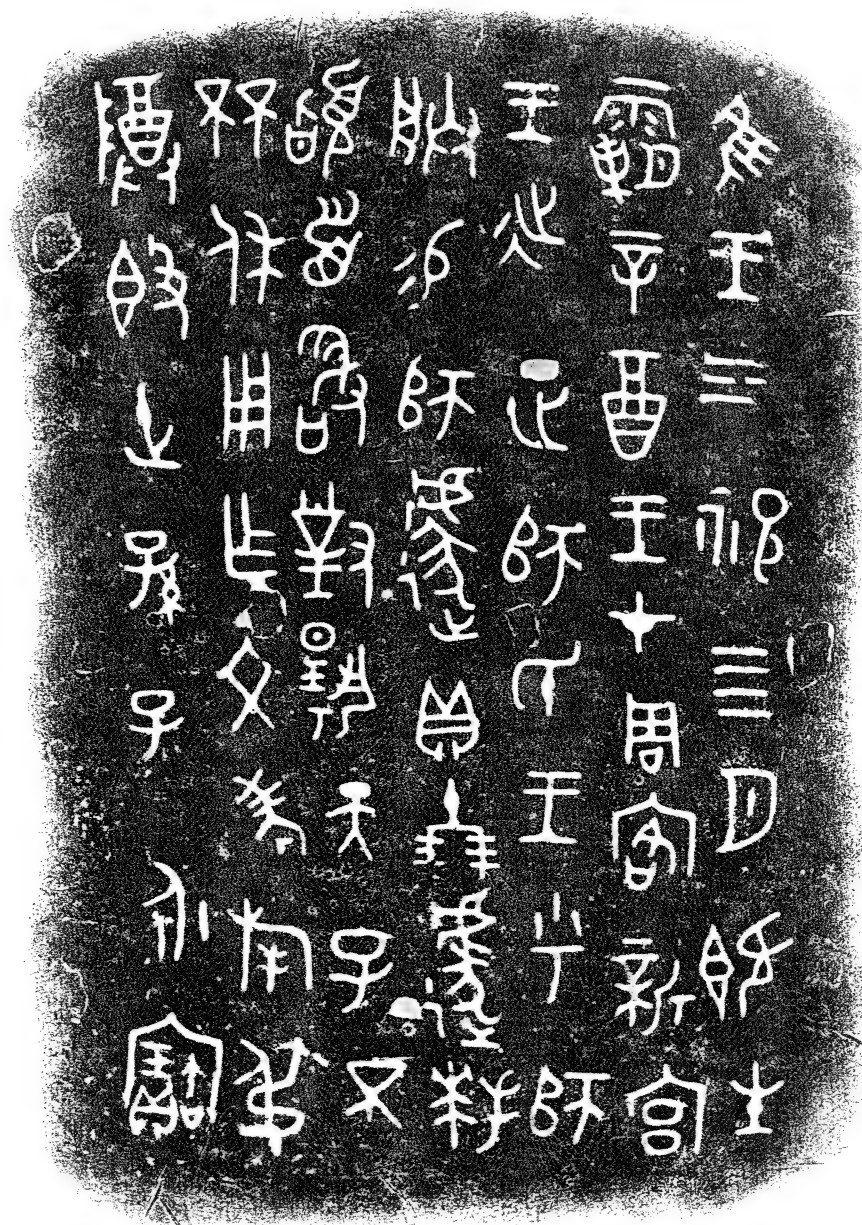 隹王三祀四月既生
霸辛酉王才周客新宮
王𢓊正師氏王乎師
朕易師遽貝十朋遽拜
𩒨首敢對揚天子不
㔻休用乍文考旄弔
尊𣪘世孫子永寶